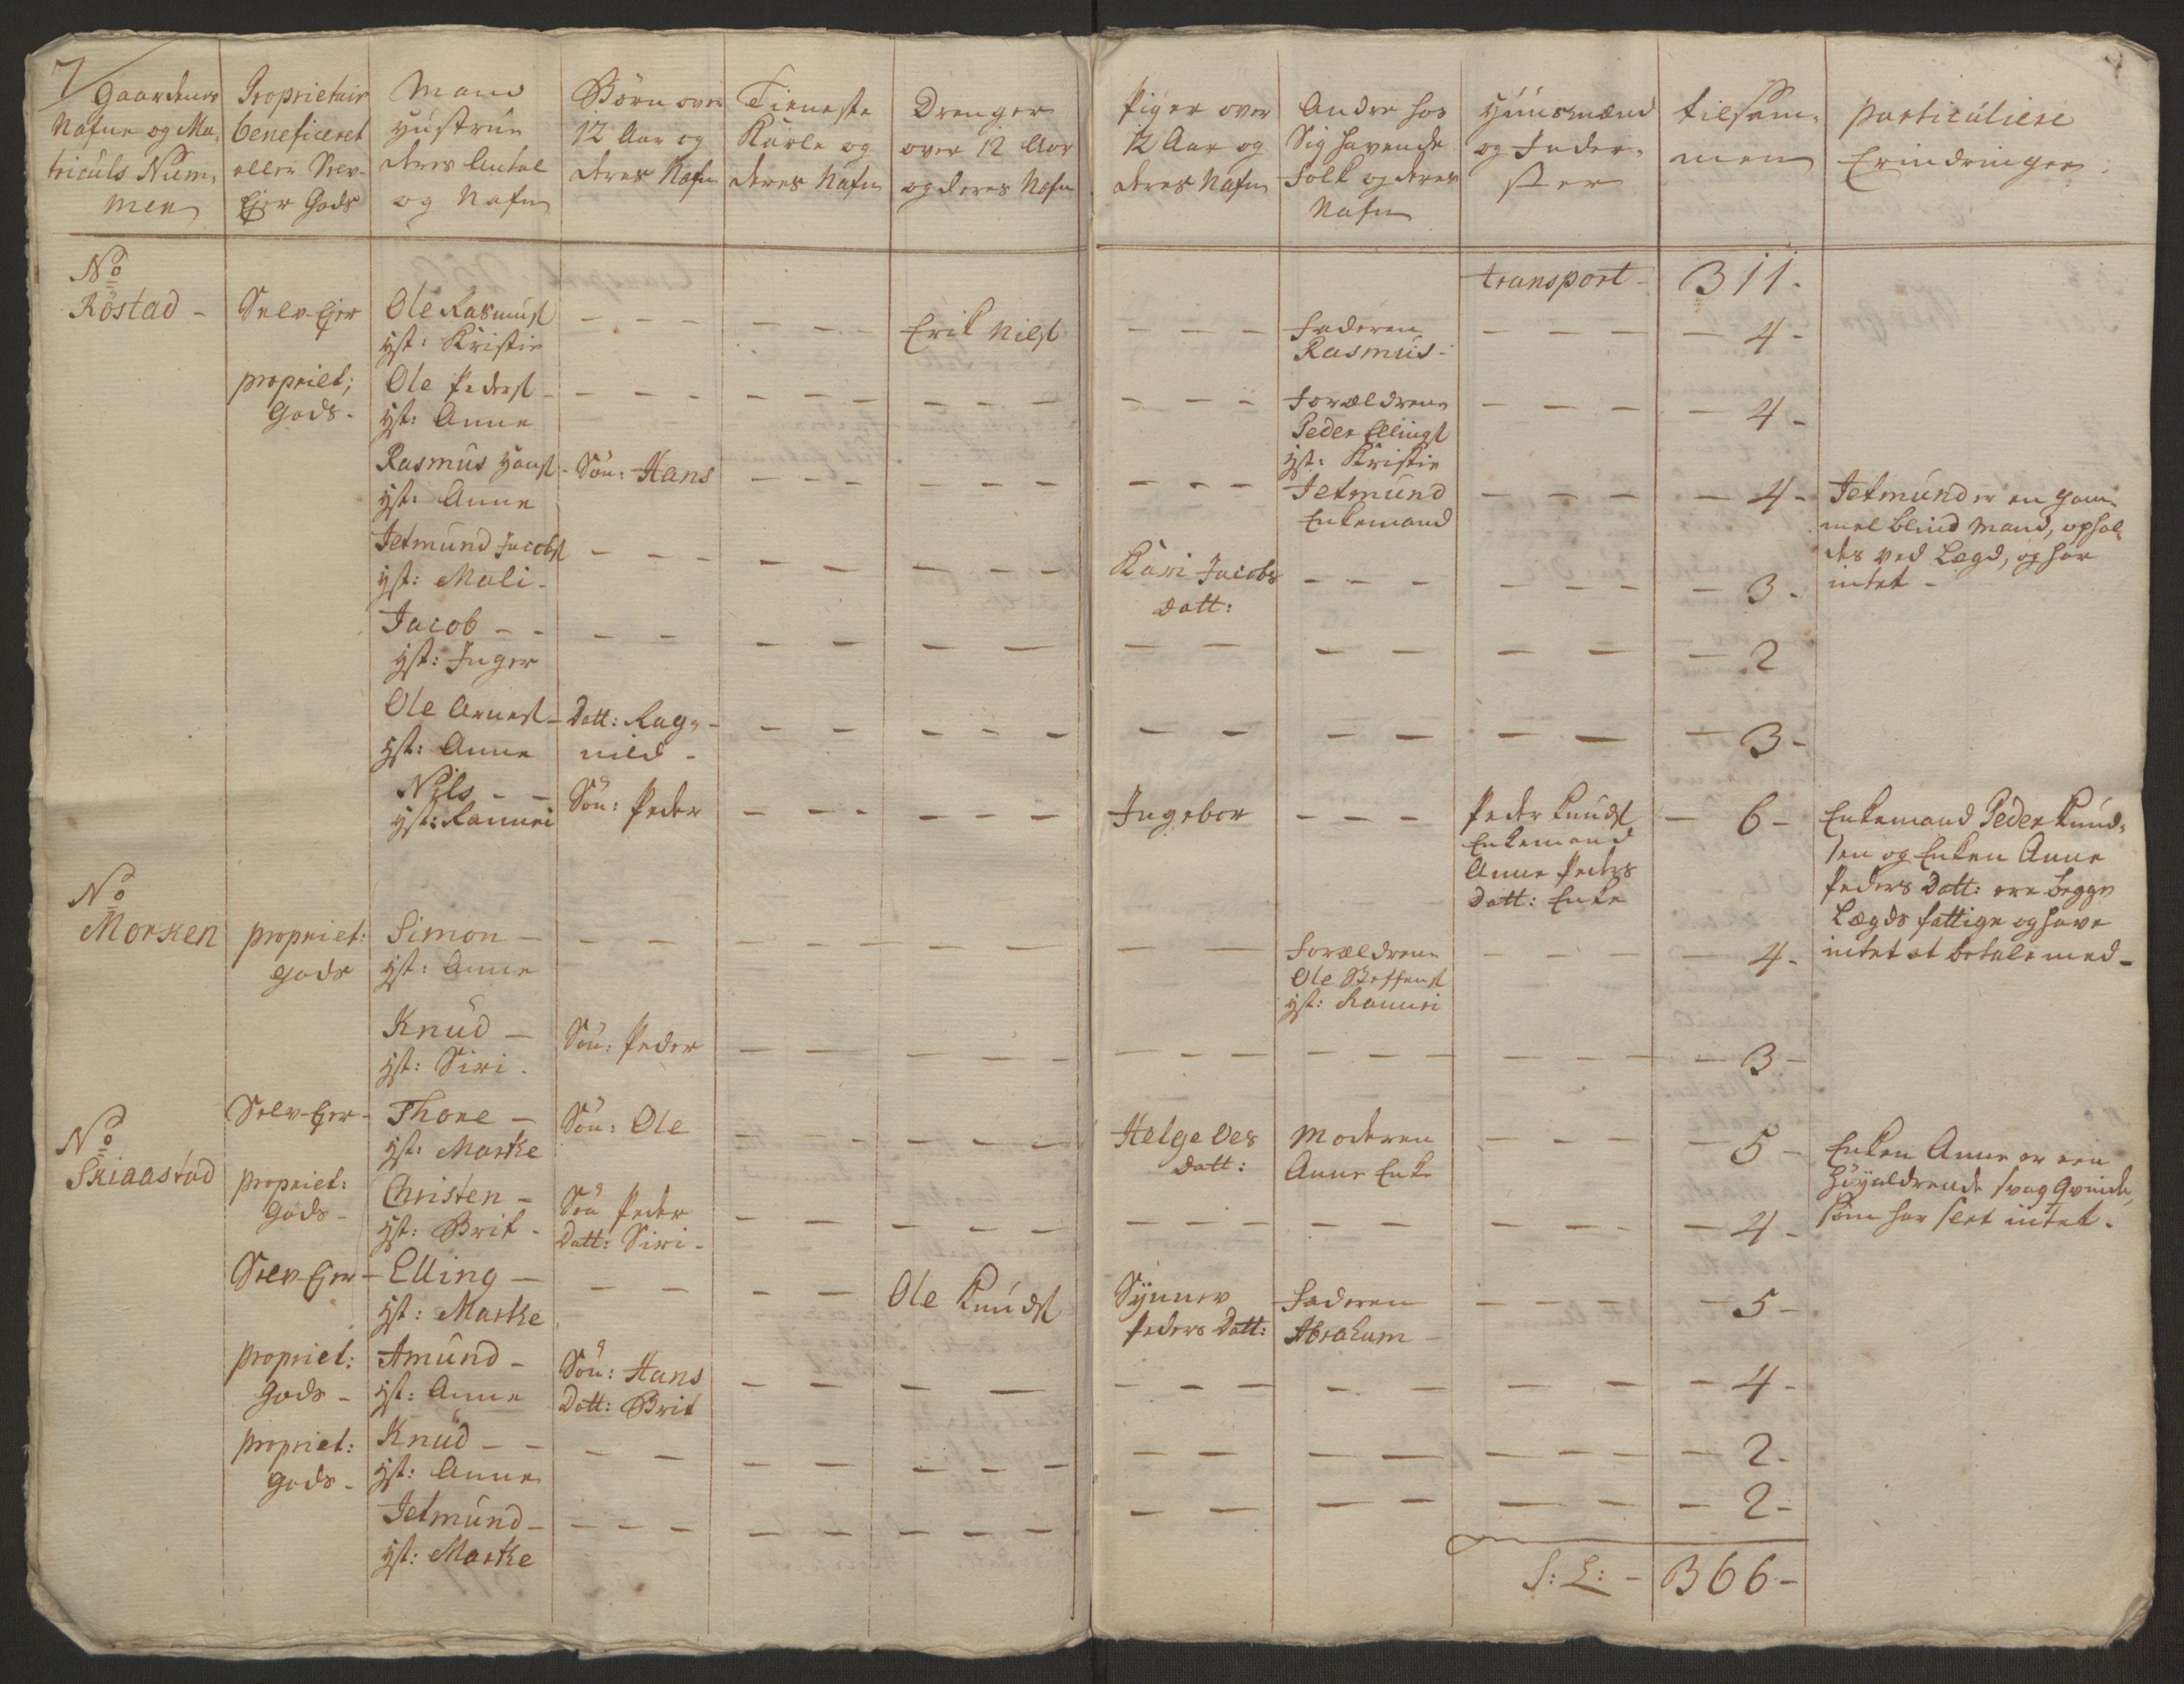 7
Gaardenes
Nafne og Ma-
triculs Num-
mer
Proprietair
beneficeret
eller Selv-
Ejer Gods
Mand
Hustrue
deres Antal
og Nafn
Börn over
12 Aar og
deres Nafn
Tieneste
Karle og
deres Nafn
Drenger
over 12 Aar
og deres Nafn
Piger over
12 Aar og
deres Nafn
Andre hos
Sig havende
Folk og deres
Nafn
Huusmænd
og Inder-
ster
tilsam-
men
particuliere
Erindringer
transport - 311.
No
Röstad -
Selv-Ejer
Ole Rasmus!
Hst: Kristie
- - - - - -
Erik Nils!
- - -
Faderen
Rasmus -
- - - - 4 -
propriet;
Gods -
Ole Peders! -
Hst: Anne
- - - - - - - - - - - -
Forældrene
Peder Ellings!
Hst: Kristie
- - - - 4 -
Rasmus Hans! -
Hst: Anne
Sön: Hans
- - - - - - - - -
Jetmund
Enkemand
- - - - 4 -
Jetmund er en gam-
mel blind Mand, ophol-
des ved Lægd, og har
intet -
Jetmund Jacobs!
Hst: Mali -
- - - - - - - - -
Kari Jacobs
Datt:
- - - - - - - 3 -
Jacob - -
Hst: Inger
- - - - - - - - - - - - - 2
Ole Arnes! -
Hst: Anne
Datt: Rag-
nild -
- - - - - - - - - - - - 3 -
Nils - -
Hst: Rannei
Sön: Peder
- - - - - -
Ingebor
- - -
Peder Knuds!
Enkemand
Anne Peders
Datt: Enke
- 6 -
Enkemand Peder Knud-
sen og Enken Anne
Peders Datt: ere begge
Lægds fattige og have
intet at betale med -
No
Morken
propriet:
gods
Simon -
Hst: Anne
- - - - - - - - - -
Forældrene
Ole Steffens!
Hst: Rannei
- - - - 4 -
Knud -
Hst: Siri -
Sön: Peder
- - - - - - - - - - - - - - - 3 -
Selv-Ejer -
Thore -
Hst: Marthe
Sön: Ole
- - - - - -
Helge Oles
Datt:
Moderen
Anne Enke
- - - - 5 -
Enken Anne er een
höyaldrende svag Qvinde,
som har slet intet.
No
Skiaastad
propriet:
Gods -
Christen -
Hst: Brit -
Sön Peder
Datt: Siri -
- - - - - - - - - - - - - 4 -
Selv-Ejer -
Elling -
Hst: Marthe
- - - -
Ole Knuds!
Synnev
Peders Datt:
Faderen
Abraham -
- - - - 5 -
propriet:
Gods -
Amund -
Hst: Anne
Sön: Hans
Datt: Brit
- - - - - - - - - - - - 4 -
propriet:
gods -
Knud - -
Hst: Anne
- - - - - - - - - - - - - - 2 -
Jetmund -
Hst: Marthe
- - - - - - - - - - - - - - - 2 -
S: L: - 366 -